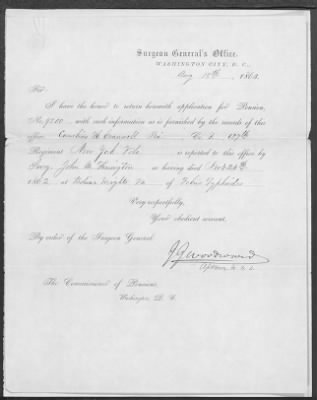 Surgeon General's Office,
WASHINGTON CITY, D. C.,
Aug 18th, 1863.
Sir:
I have the honor to return herewith application for Pension,
No. 9700, with such information as is furnished by the records of this
office. Cornelius H. Pri Co. F. 107th
Regiment New York Vols is reported to this office by
Surg. John M. Flemington as having died Nov 24th
1862, at Bolivar Heights Va of Febris Typhoides
Very respectfully,
Your obedient servant,
By order of the Surgeon General:
J J Woodward
The Commissioner of Pensions,
Washington, D. C.